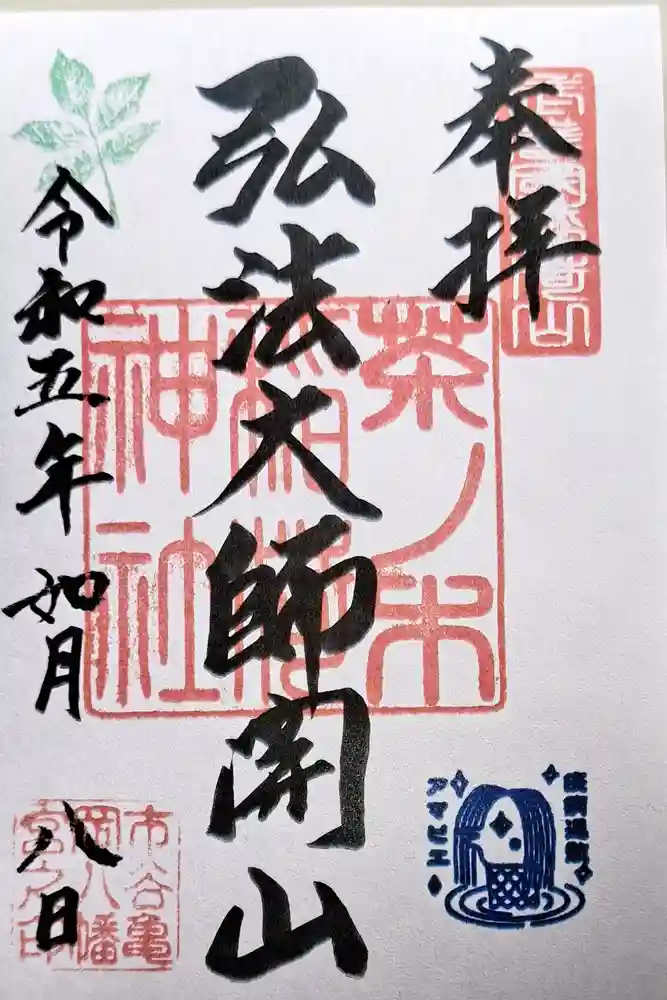 奉拝
弘法大師開山
令和五年 如月 八日
茶ノ木
稲荷
神社
市谷亀
岡八幡
宮之印
疫病退散
アマビエ